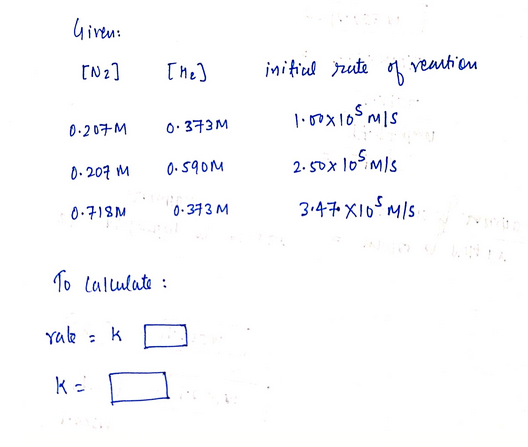 Given:
[N2] [He] initial rate of reaction
0.207M 0.373M 1.00x10⁵ M/s
0.207 M 0.590M 2.50x 10⁵ M/s
0.718M 0.373 M 3.47 X10⁵ M/s
To calculate :
rate = k
k =